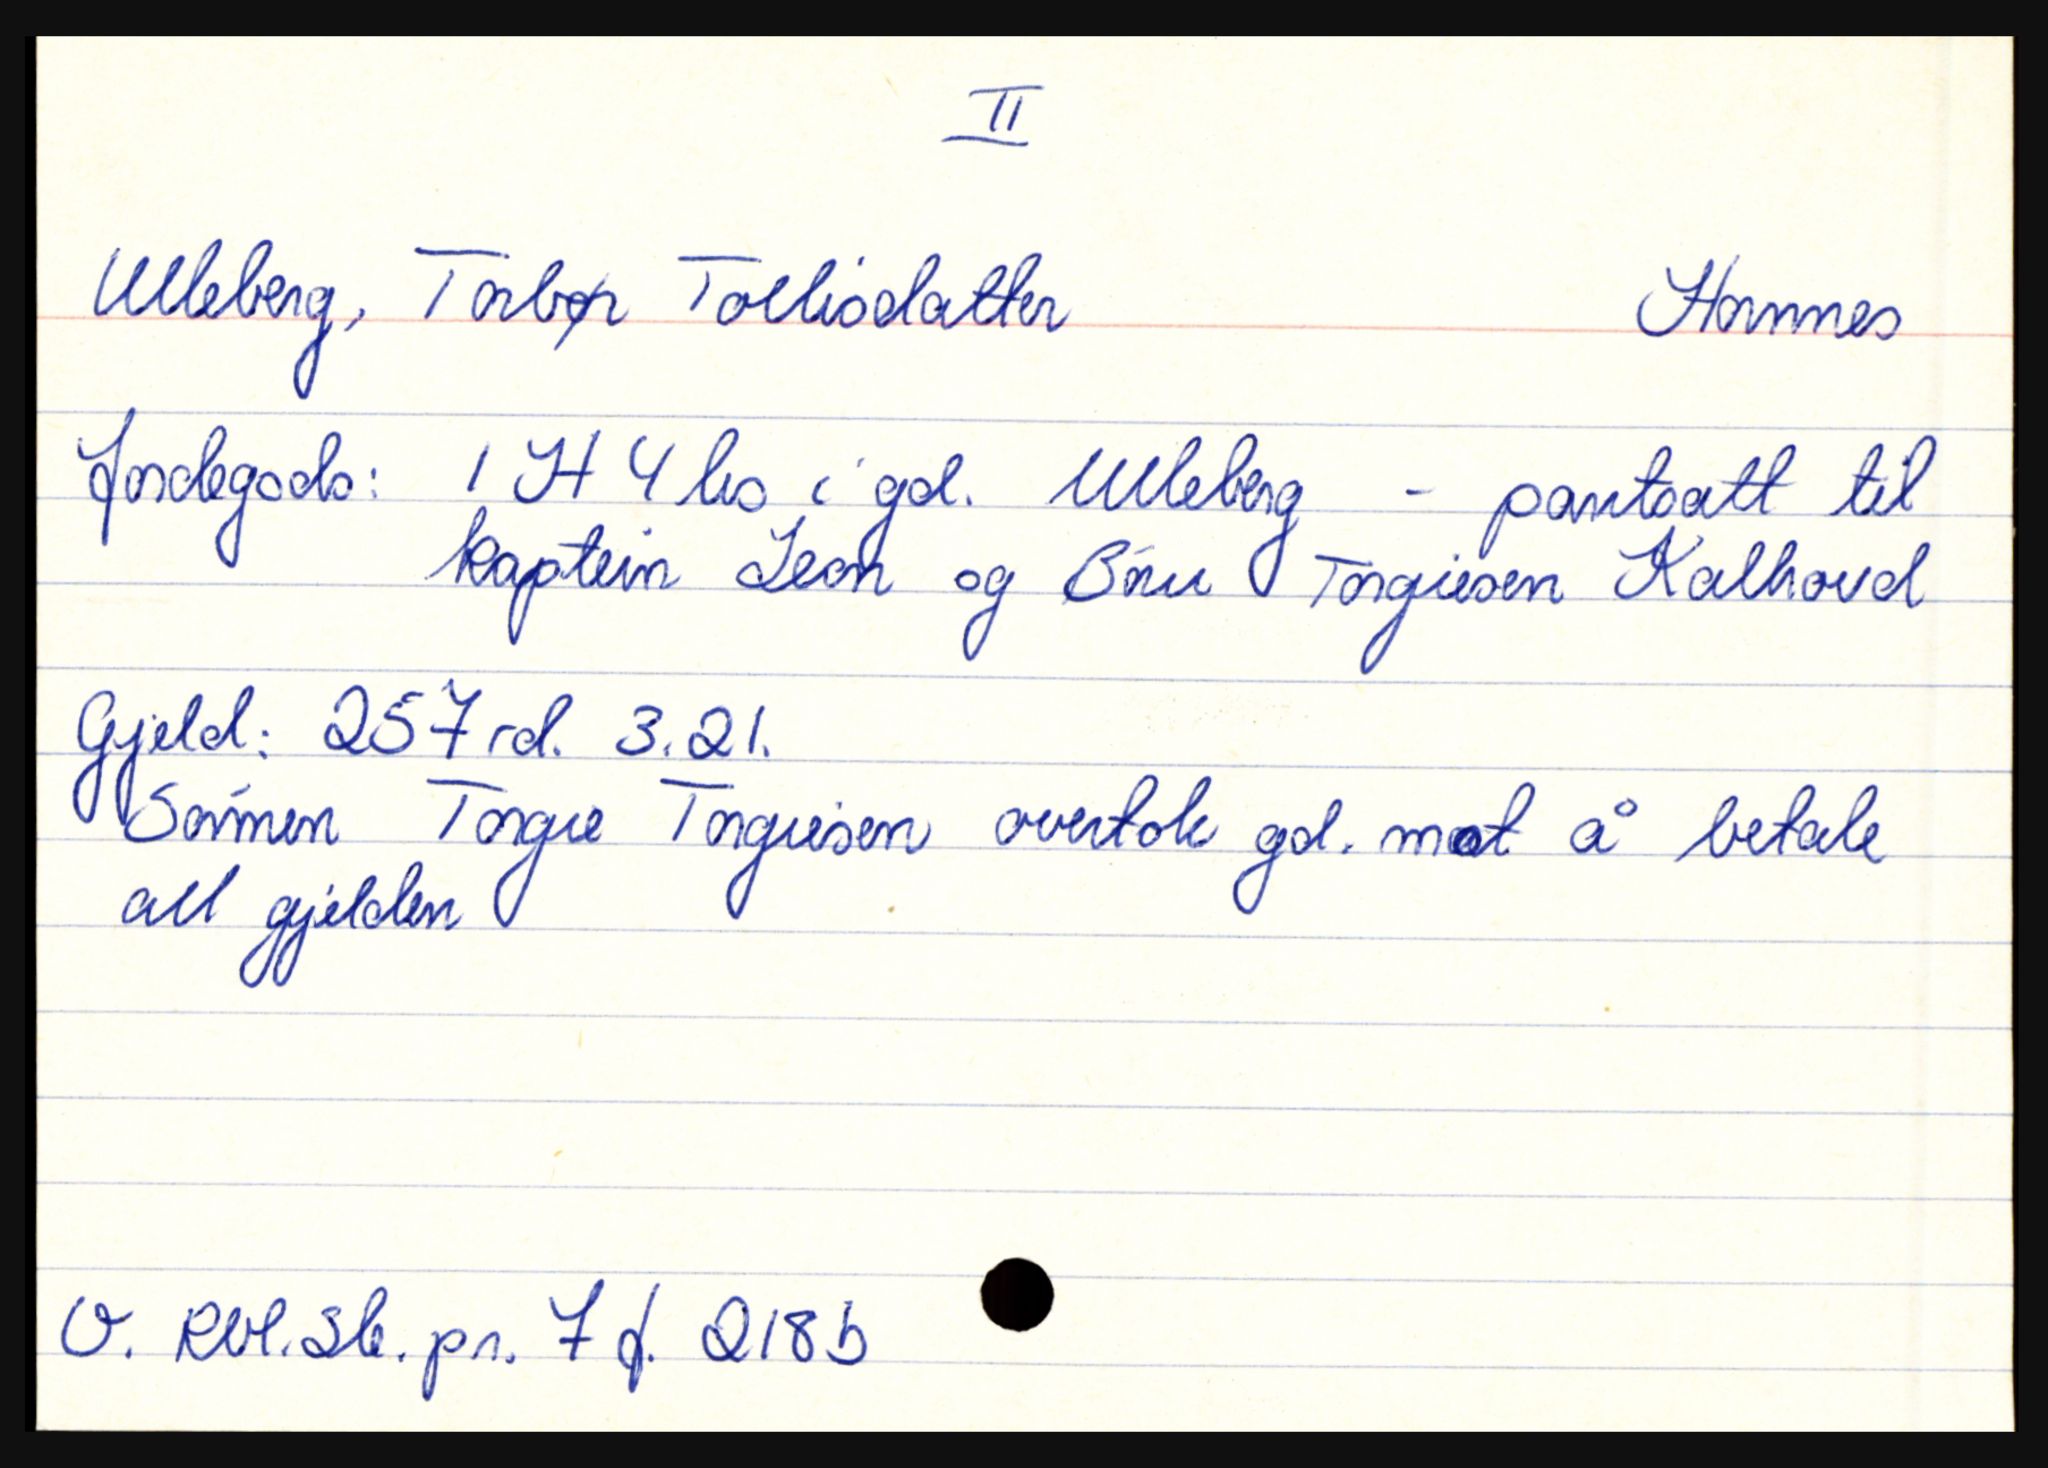 II
Uleberg, Torbør Tollisdatter Hornnes
Jordegods: 1 H 4 lis i gd. Uleberg - pantsatt til
kaptein Jean og Bónu Torgiesen Kalhovd
Gjeld: 257 rd. 3.21.
Sónnen Torgie Torgiesen overtok gd. mot å betale
all gjelden
V. Rbl. Sk. pr. 7 f. 218b